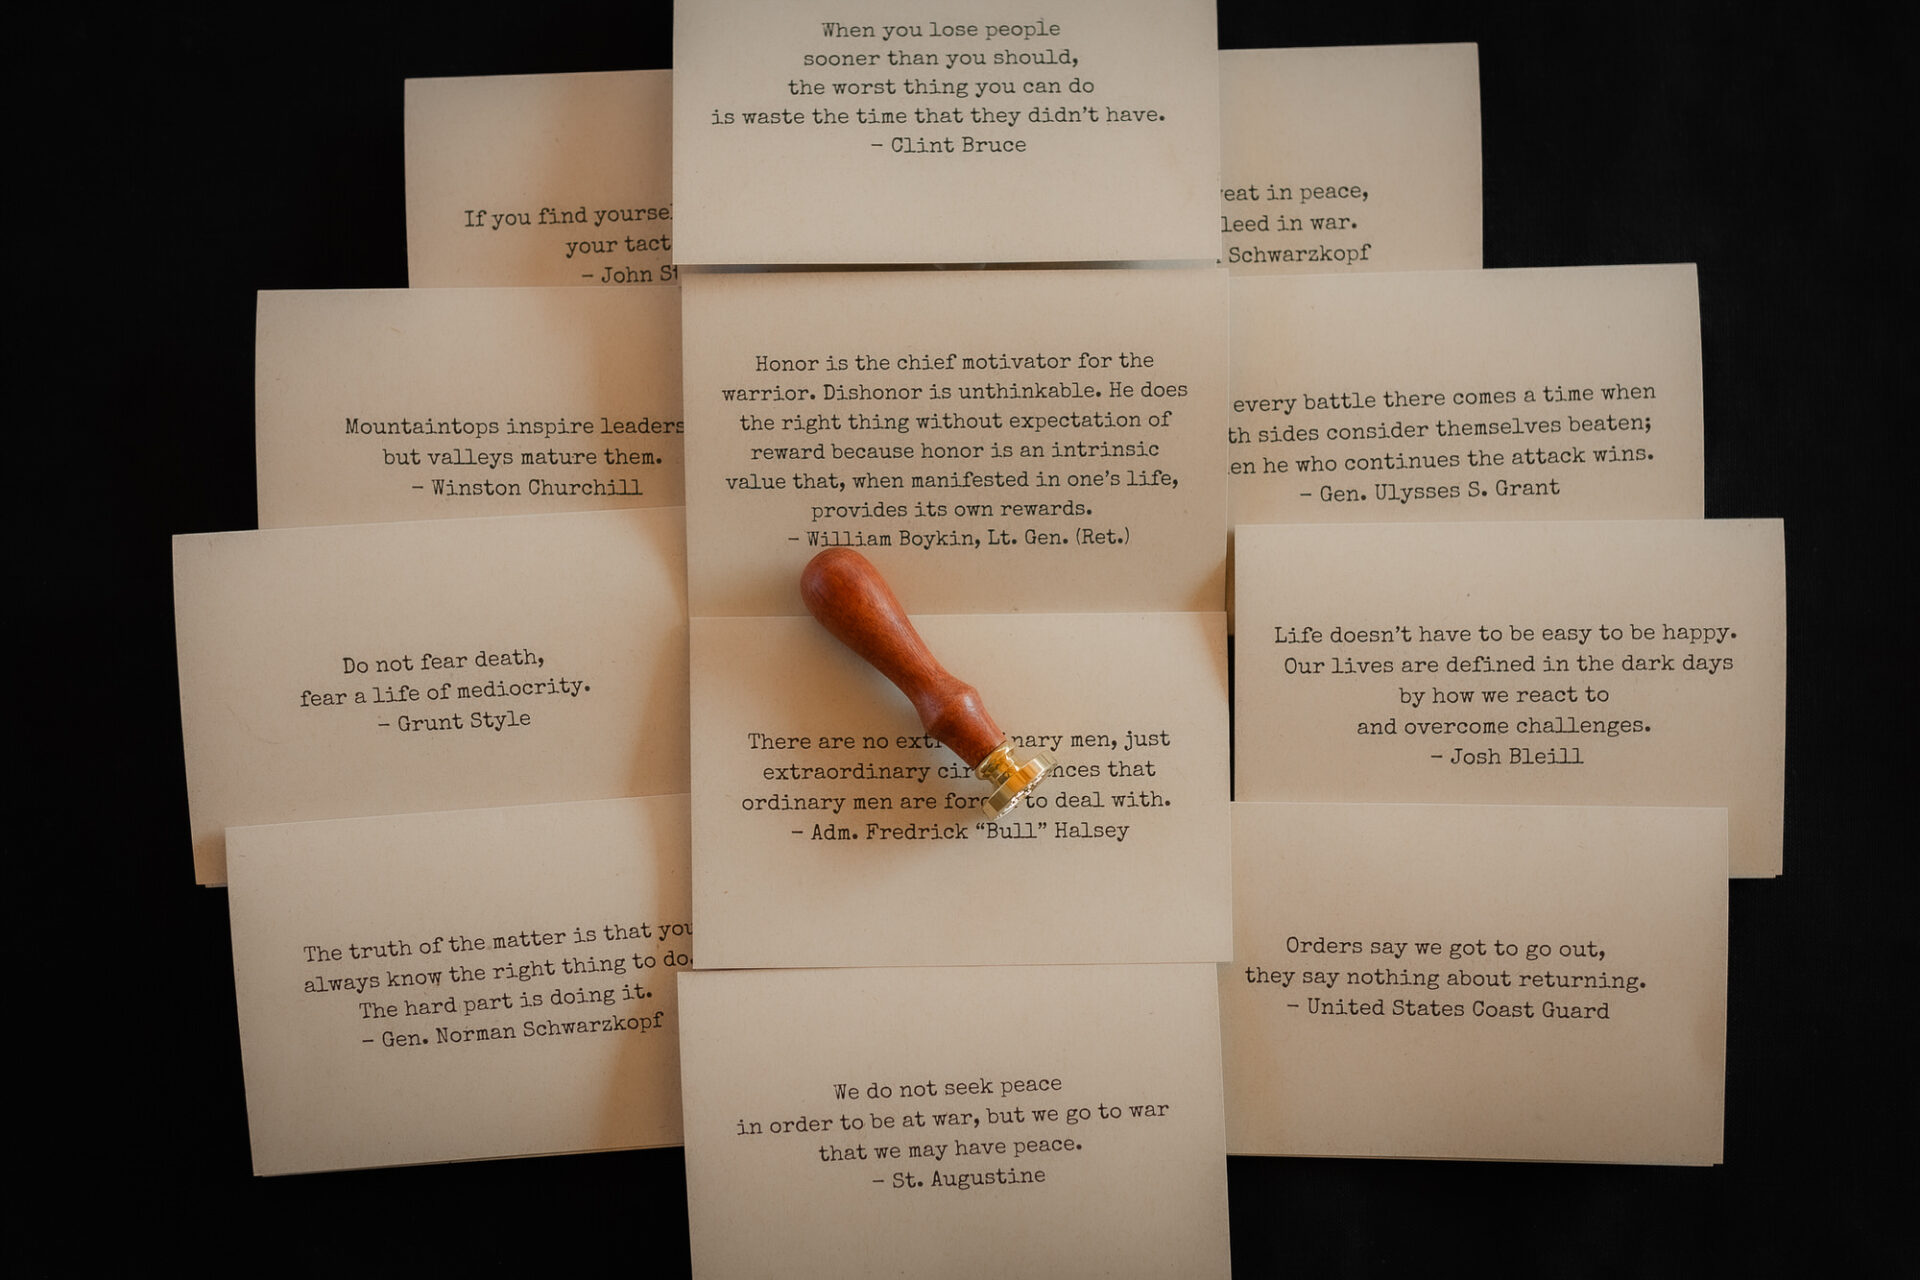 When you lose people
sooner than you should,
the worst thing you can do
is waste the time that they didn't have.
– Clint Bruce
If you find
your
– John
in peace,
in war.
Schwarzkopf
Mountaintops inspire leaders
but valleys mature them.
– Winston Churchill
Honor is the chief motivator for the
warrior. Dishonor is unthinkable. He does
the right thing without expectation of
reward because honor is an intrinsic
value that, when manifested in one's life,
provides its own rewards.
– William Boykin, Lt. Gen. (Ret.)
every battle there comes a time when
sides consider themselves beaten;
he who continues the attack wins.
– Gen. Ulysses S. Grant
Do not fear death,
fear a life of mediocrity.
– Grunt Style
There are no men, just
extraordinary that
ordinary men are to deal with.
– Adm. Fredrick “Bull” Halsey
Life doesn't have to be easy to be happy.
Our lives are defined in the dark days
by how we react to
and overcome challenges.
– Josh Bleill
The truth of the matter is that you
always know the right thing to do.
The hard part is doing it.
– Gen. Norman Schwarzkopf
Orders say we got to go out,
they say nothing about returning.
– United States Coast Guard
We do not seek peace
in order to be at war, but we go to war
that we may have peace.
– St. Augustine